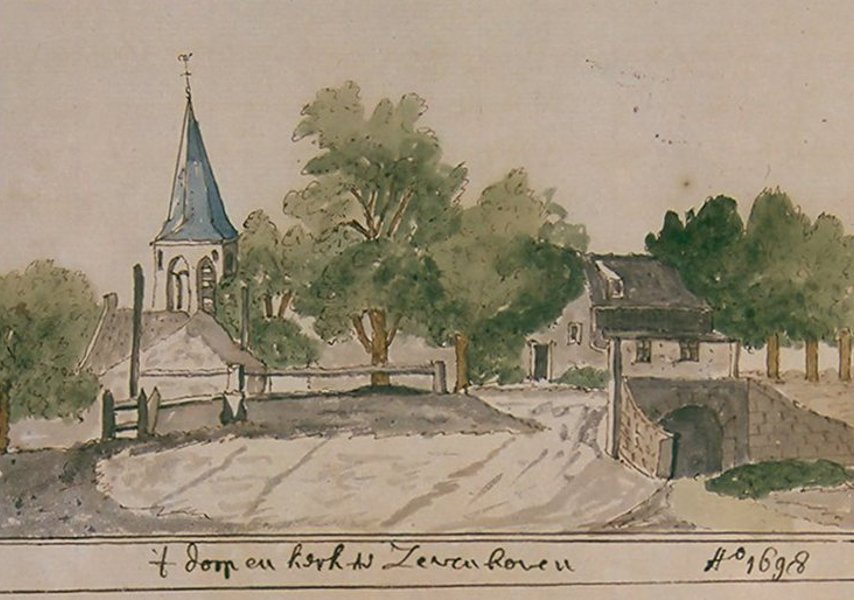 't dorp en kerk te Zevenhoven Aº 1698